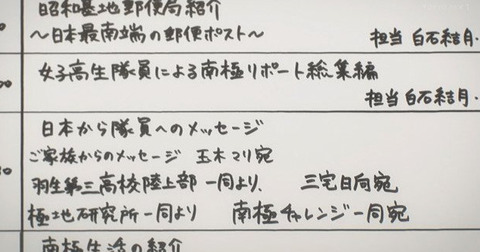 昭和基地郵便局紹介
〜日本最南端の郵便ポスト〜 担当 白石結月.
女子高生隊員による南極リポート総集編
担当 白石結月.
日本から隊員へのメッセージ
ご家族からのメッセージ 玉木マリ宛
羽生第三高校陸上部一同より、 三宅日向宛
極地研究所一同より 南極チャレンジ一同宛
南極生活の紹介